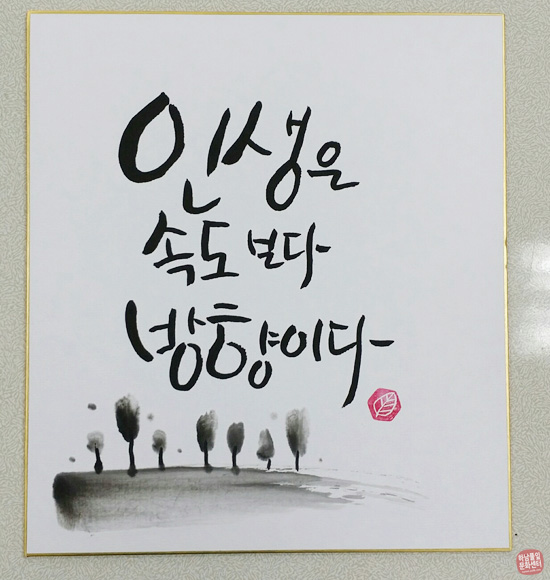 인생은
속도보다
방향이다
하남통일
문화센터